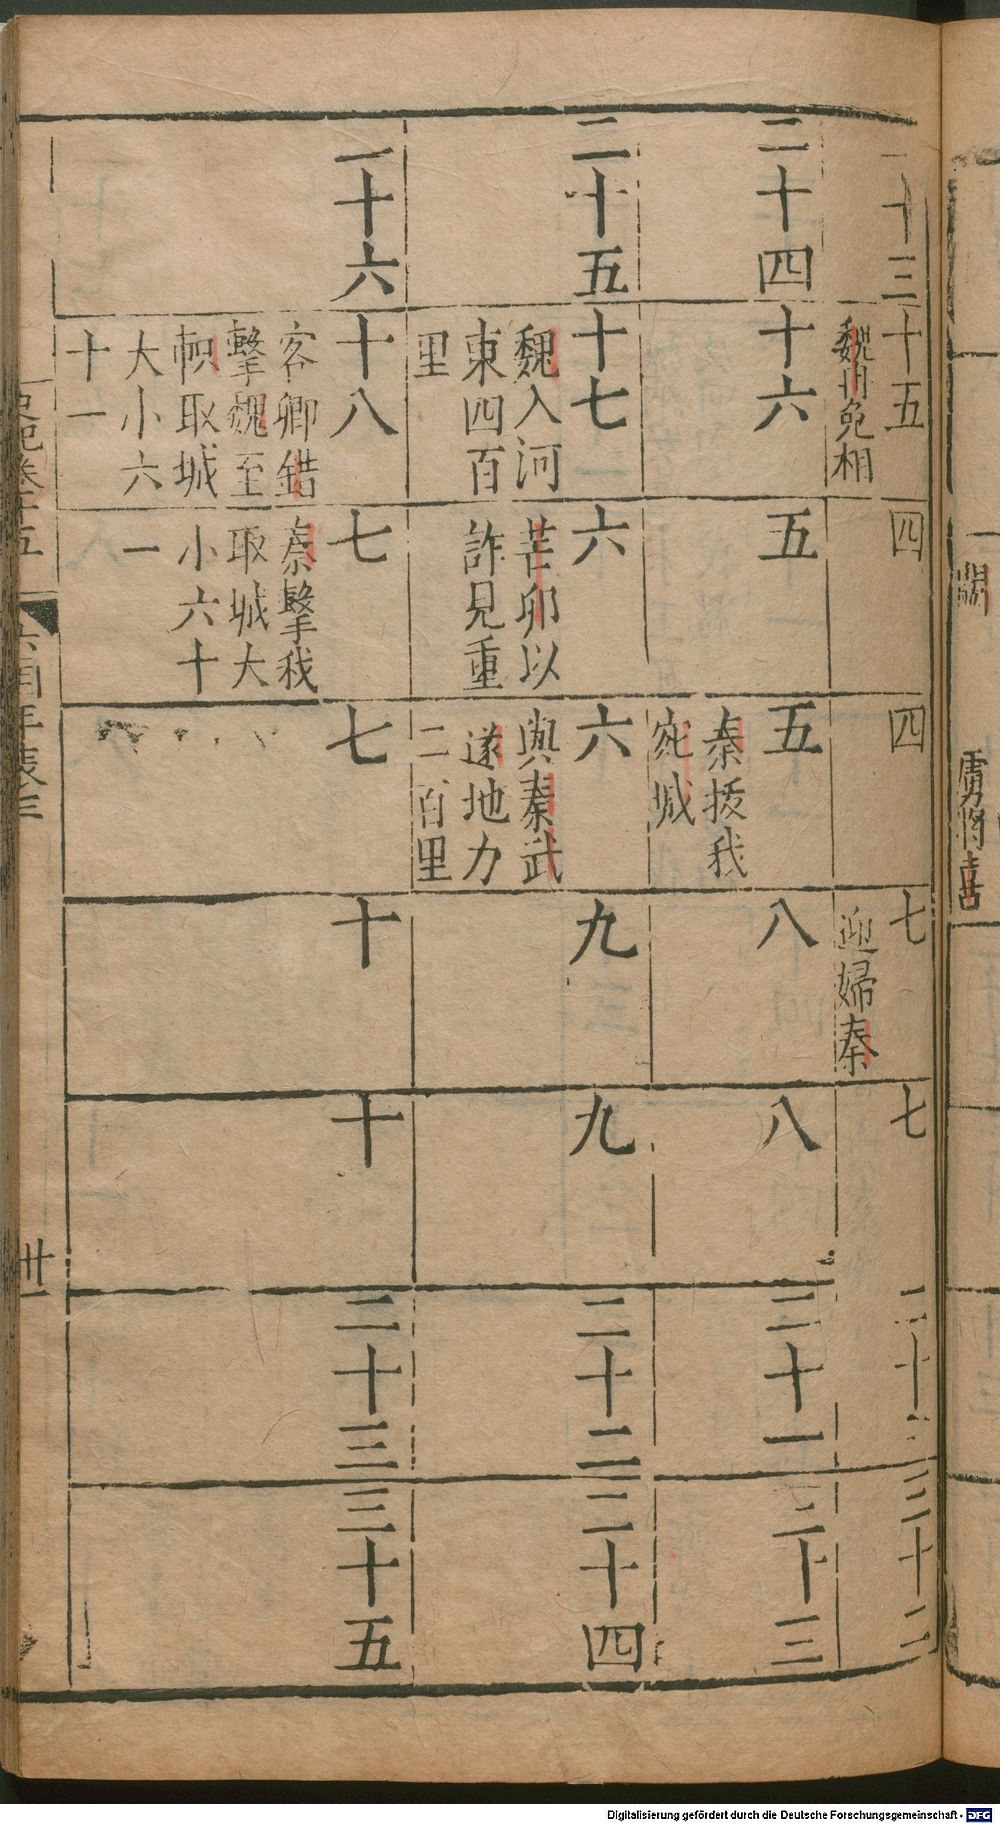 二十三
十五
魏冉免相
四
四
七
迎婦秦
七
二十
三十二
二十四
十六
五
五
秦拔我
宛城
八
八
二十一
二十三
二十五
十七
魏入河
東四百
里
六
芒卯以
詐見重
六
與秦武
遂地方
二百里
九
九
二十二
三十四
二十六
十八
客卿錯
擊魏至
軹取城
大小六
十一
七
秦擊我
取城大
小六十
一
七
十
十
二十三
三十五
史記卷十五
六國年表三
卅一
闕
虜將喜
Digitalisierung gefördert durch die Deutsche Forschungsgemeinschaft - DFG